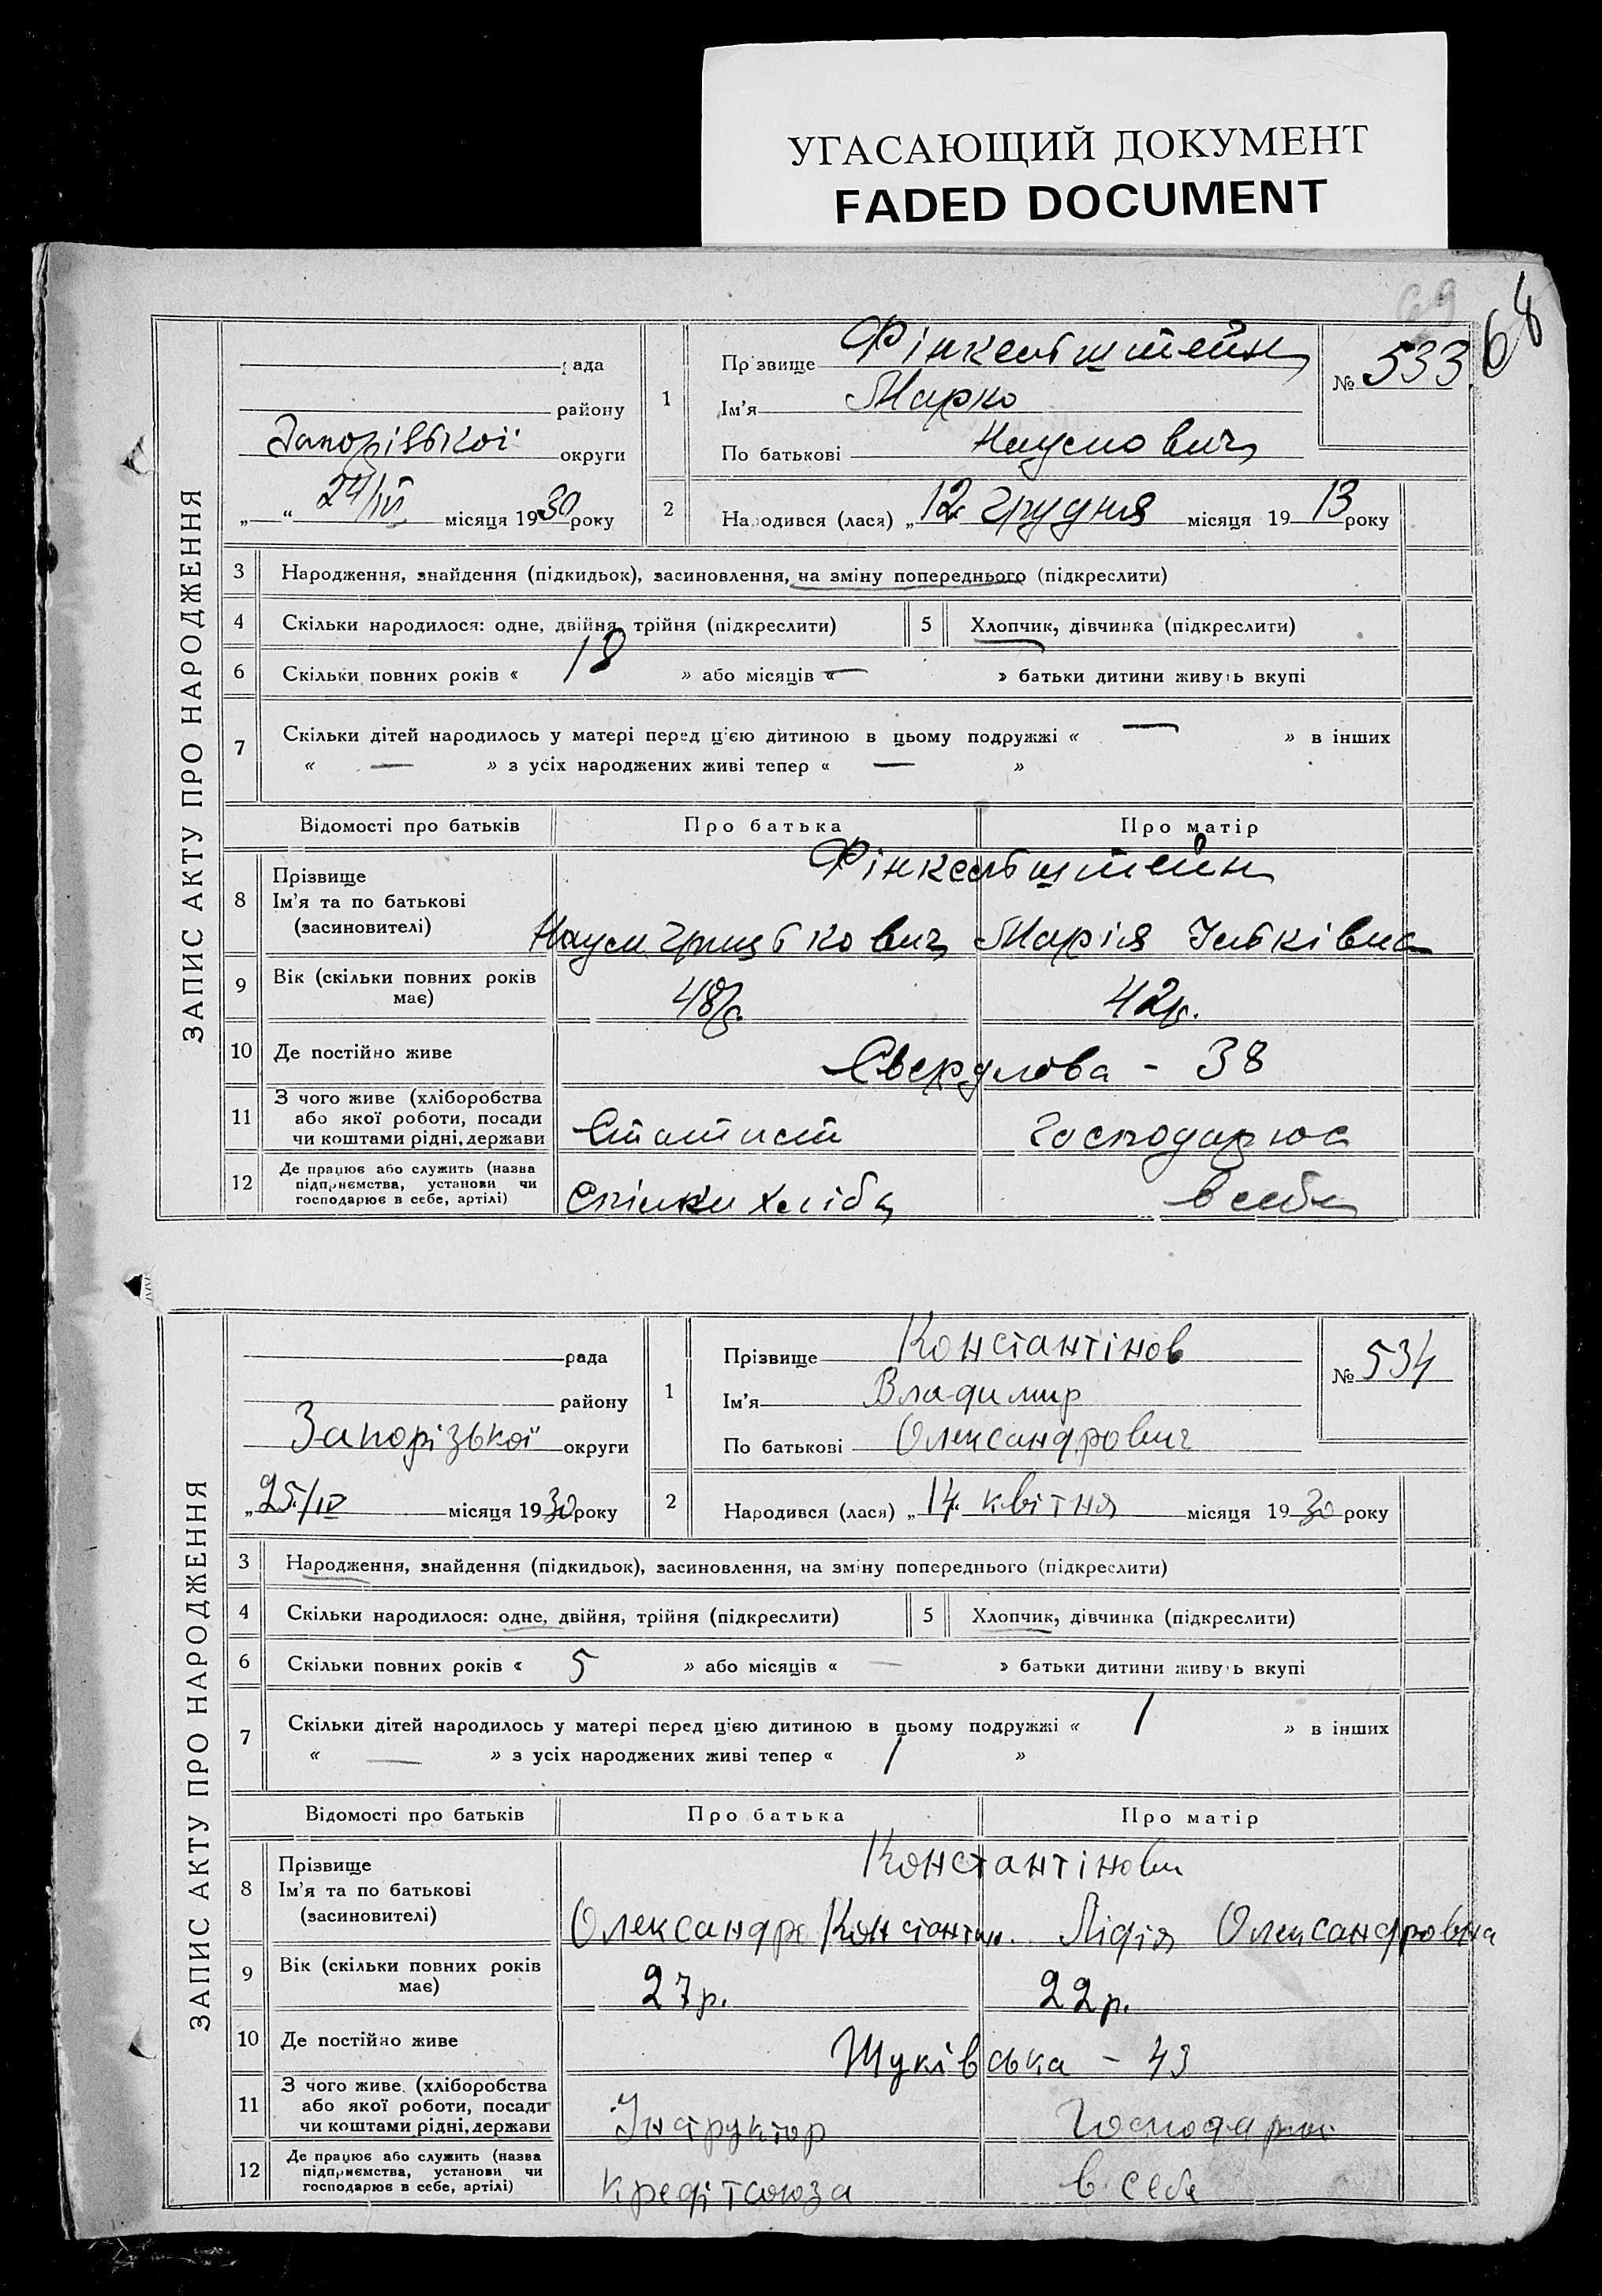 УГАСАЮЩИЙ ДОКУМЕНТ
FADED DOCUMENT
69
68
ЗАПИС АКТУ ПРО НАРОДЖЕННЯ
рада
району
Запорізької округи
„ “ 24/IV місяця 1930 року
1
Прізвище Фінкельштейн
Ім’я Марко
По батькові Наумович
№ 533
2
Народився (лася) „12 грудня місяця 1913 року
3 Народження, знайдення (підкидьок), засиновлення, на зміну попереднього (підкреслити)
4 Скільки народилося: одне, двійня, трійня (підкреслити)
5 Хлопчик, дівчинка (підкреслити)
6 Скільки повних років « 18 » або місяців « — » батьки дитини живуть вкупі
7 Скільки дітей народилось у матері перед цією дитиною в цьому подружжі « — » в інших
« — » з усіх народжених живі тепер « — »
Відомості про батьків Про батька Про матір
8 Прізвище
Ім’я та по батькові
(засновителі)
Фінкельштейн
Наум Грицькович Марія Ільківна
9 Вік (скільки повних років
має)
48р. 42р.
10 Де постійно живе Свердлова - 38
11 З чого живе (хліборобства
або якої роботи, посади
чи коштами рідні, держави
Статист Господарює
12 Де працює або служить (назва
підприємства, установи чи
господарює в себе, артілі)
Спілки Хліба в себе
ЗАПИС АКТУ ПРО НАРОДЖЕННЯ
рада
району
Запорізької округи
„25/IV місяця 1930 року
1
Прізвище Константінов
Ім’я Владимир
По батькові Олександрович
№ 534
2
Народився (лася) „14. квітня місяця 1930 року
3 Народження, знайдення (підкидьок), засиновлення, на зміну попереднього (підкреслити)
4 Скільки народилося: одне, двійня, трійня (підкреслити)
5 Хлопчик, дівчинка (підкреслити)
6 Скільки повних років « 5 » або місяців « — » батьки дитини живуть вкупі
7 Скільки дітей народилось у матері перед цією дитиною в цьому подружжі « 1 » в інших
« — » з усіх народжених живі тепер « 1 »
Відомості про батьків Про батька Про матір
8 Прізвище
Ім’я та по батькові
(засиновителі)
Константінови
Олександр Константин. Лідія Олександровна
9 Вік (скільки повних років
має)
27р. 22р.
10 Де постійно живе Жуківська - 43
11 З чого живе (хліборобства
або якої роботи, посади
чи коштами рідні, держави
Інструктор Господарює
12 Де працює або служить (назва
підприємства, установи чи
господарює в себе, артілі)
Кредітсоюза в себе